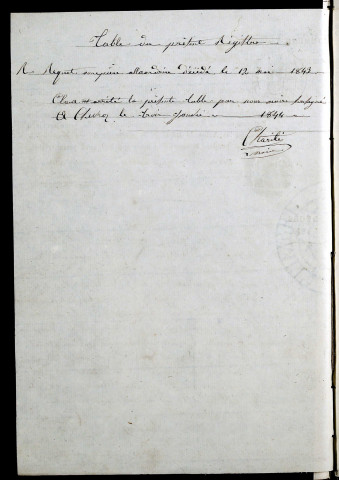 Table du présent Registre
R. Riquet marguerite Alexandrine décédée le 12 mai 1843
Clos et arrêté la présente table par nous maire soussigné
A Cheroy le trois janvier 1844
Charité
maire